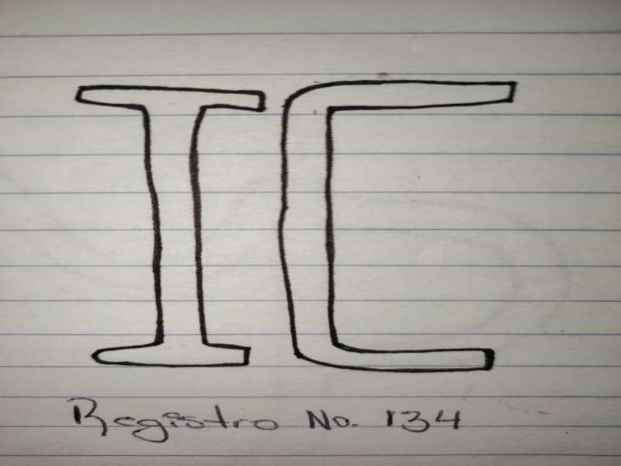 IC
Registro No. 134